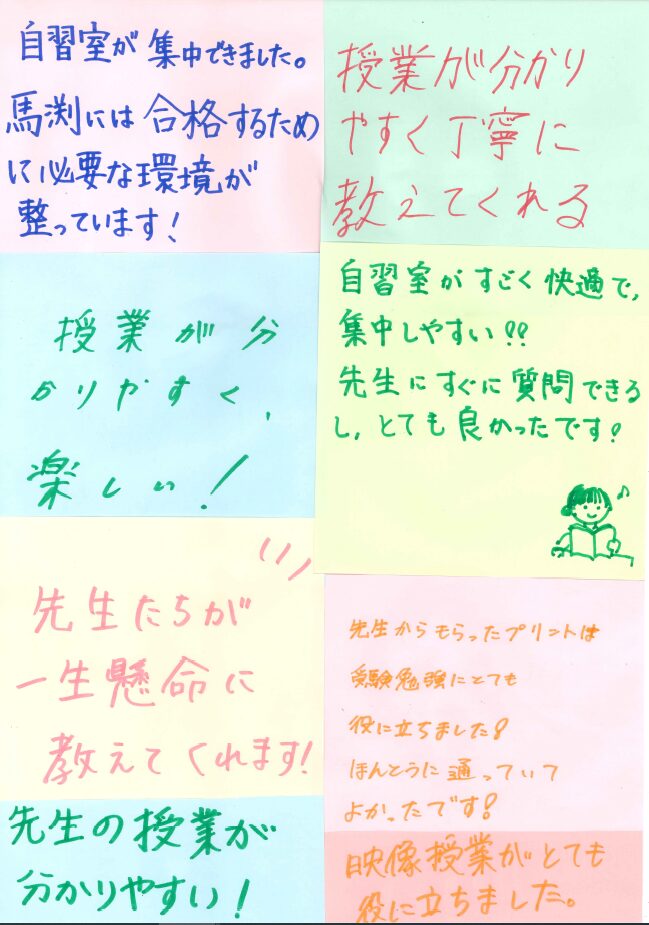 自習室が集中できました。
馬渕には合格するため
に必要な環境が
整っています！
授業が分かり
やすく丁寧に
教えてくれる
授業が分
かりやすく、
楽しい！
自習室がすごく快適で、
集中しやすい!!
先生にすぐに質問できる
し、とても良かったです！
先生たちが
一生懸命に
教えてくれます！
先生からもらったプリントは
受験勉強にとても
役に立ちました！
ほんとうに通っていて
よかったです！
先生の授業が
分かりやすい！
映像授業がとても
役に立ちました。